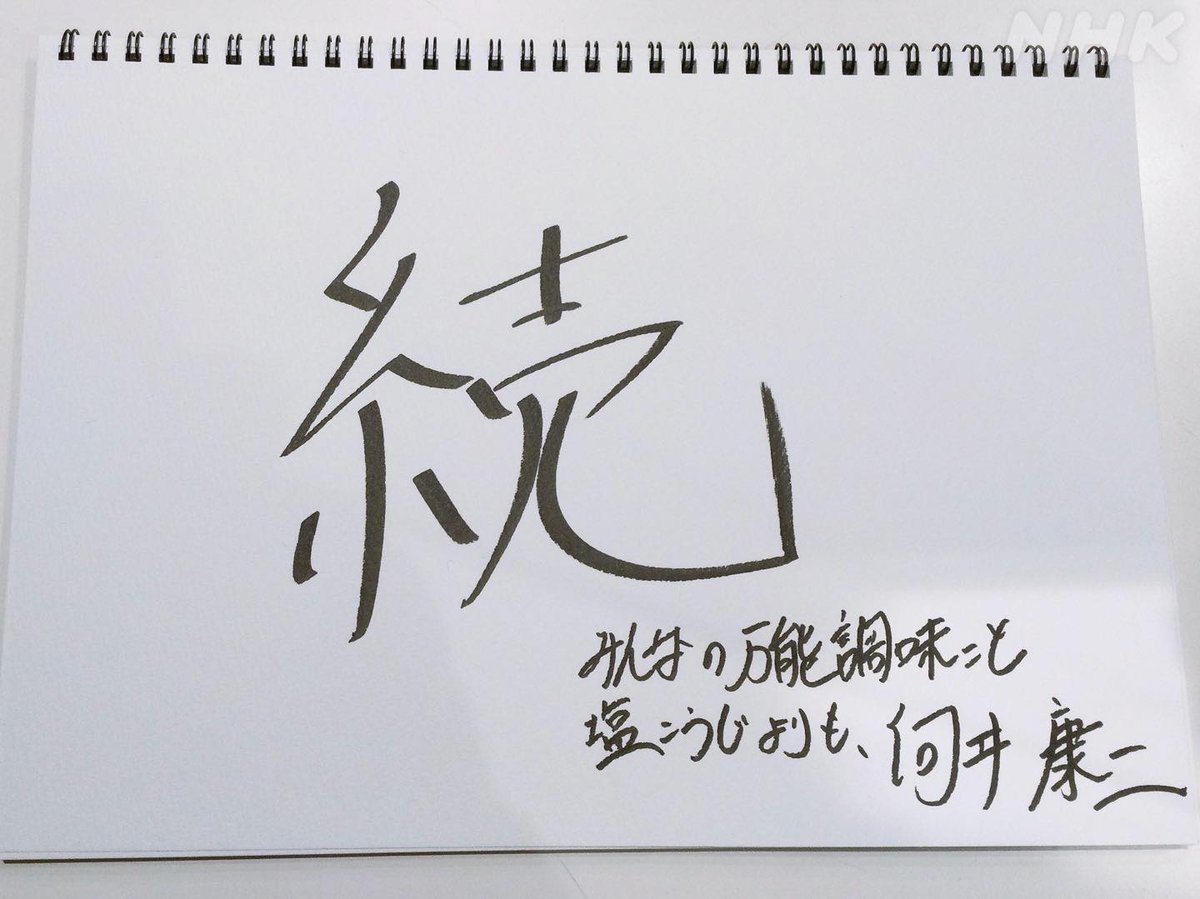 NHK
続
みんなの万能調味こと
塩こうじよりも、向井康二